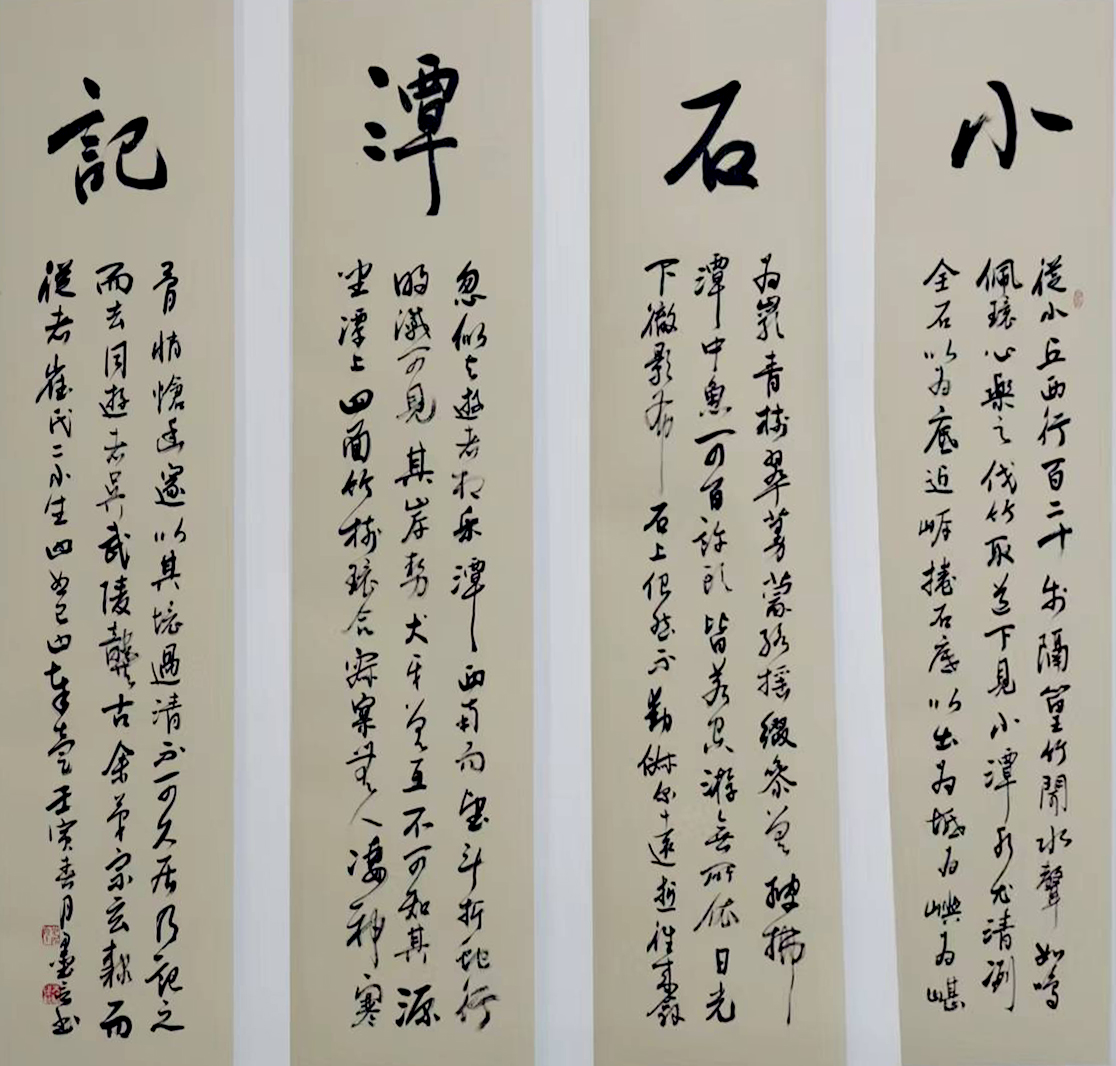 小石潭記
從小丘西行百二十步隔篁竹聞水聲如鳴
佩環心樂之伐竹取道下見小潭水尤清冽
全石以為底近岸捲石底以出為坻為嶼為嵁
為巖青樹翠蔓蒙絡搖綴參差披拂
潭中魚可百許頭皆若空游無所依日光
下徹影布石上佁然不動俶爾遠逝往來翕
忽似與遊者相樂潭西南而望斗折蛇行
明滅可見其岸勢犬牙差互不可知其源
坐潭上四面竹樹環合寂寥無人淒神寒
骨悄愴幽邃以其境過清不可久居乃記之
而去同遊者吳武陵龔古余弟宗玄隸而
從者崔氏二小生曰恕己曰奉壹壬寅春月墨言書